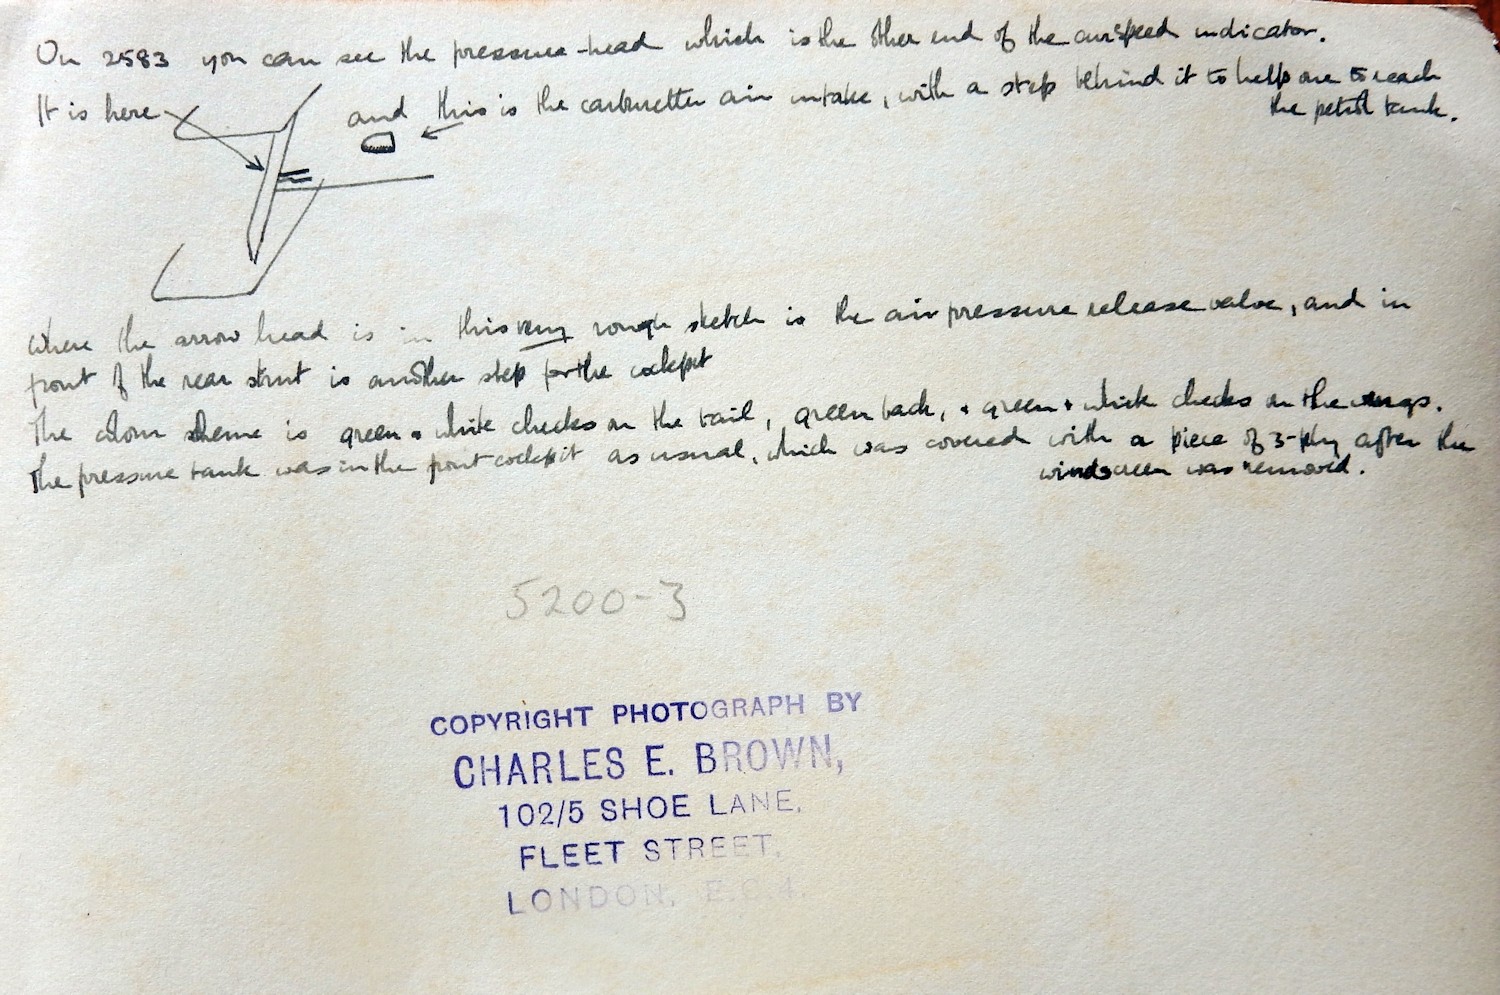 On 2583 you can see the pressure-head which is the other end of the airspeed indicator.
It is here and this is the carburetter air intake, with a step behind it to help one to reach
the petrol tank.
Where the arrow head is in this very rough sketch is the air pressure release valve, and in
front of the rear strut is another step for the cockpit
The colour scheme is green & white checks on the tail, green back, & green & white checks on the wings.
The pressure tank was in the front cockpit as usual, which was covered with a piece of 3-ply after the
windscreen was removed.
5200-3
COPYRIGHT PHOTOGRAPH BY
CHARLES E. BROWN,
102/5 SHOE LANE,
FLEET STREET,
LONDON, E.C.4.